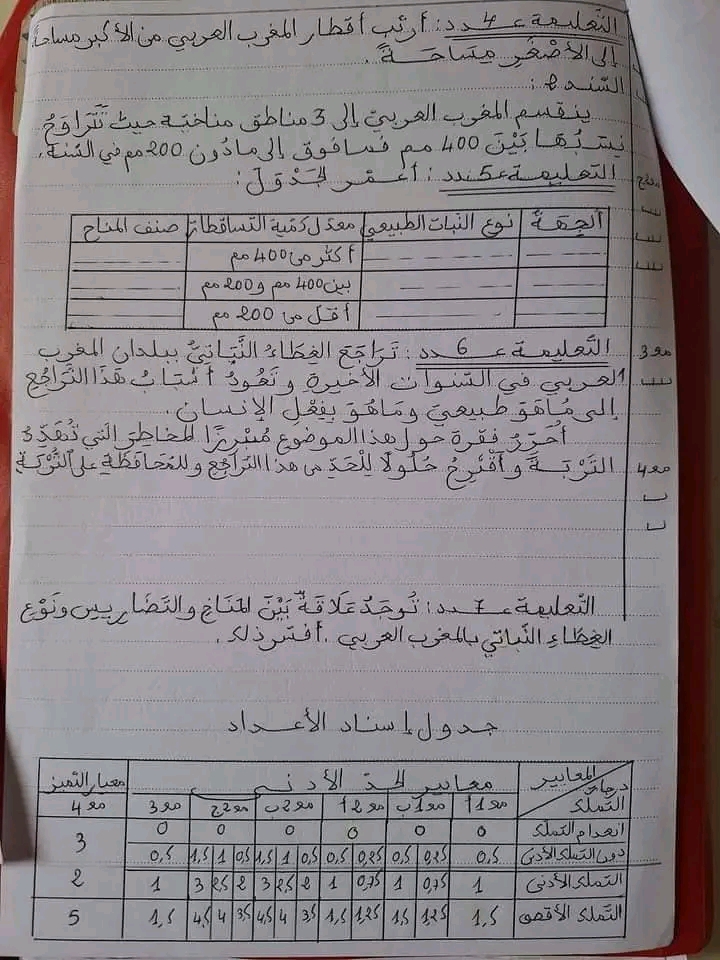 التعليمة عـ4ـدد: أرتب أقطار المغرب العربي من الأكبر مساحة
إلى الأصْغَرِ مِسَاحَةً.
السّند 2:
ينقسم المغرب العربيّ إلى 3 مناطق مناخية حيث تَتَرَاوَحُ
نسبُهَا بَيْنَ 400 مم فمافوق إلى مادُون 200 مم في السّنة.
مع2ج
التعليمة عـ5ـدد: أعمّر الجَدْوَلَ:
الجِهَة | نوع النّبات الطّبيعي | معدّل كمّية التّساقطات | صنف المناخ
أكثر من 400 مم
بين 400 مم و 200 مم
أقلّ من 200 مم
مع3
التّعليمة عـ6ـدد: تَرَاجَعَ الغِطَاءُ النَّبَاتِيُّ ببلدان المغرب
العربي في السّنوات الأخيرة وتَعُودُ أسْبَابُ هَذَا التَّرَاجُعِ
إلى مُاهَوَ طبيعيّ ومَاهُوَ بِفِعْلِ الإنسان.
أُحَرِّرُ فقرة حول هذا الموضوع مُبْرِزًا المخاطِرَ الّتي تُهَدِّدُ
مع4
التّرْبَةَ وأقْتَرِحُ حُلُولًا لِلْحَدِّ من هذا التّراجع وللمُحَافَظَةِ على التُّرْبَةِ
التّعليمة عـ7ـدد: تُوجَدُ عَلَاقَةٌ بَيْنَ المَنَاخِ والتّضَاريس ونَوْعِ
الغِطَاءِ النّباتي بالمغرب العربي. أفسّر ذلك.
جدول إسناد الأعداد
المعايير | معايير الحدّ الأدنى | معيار التميز
درجات التملك | مع1أ | مع1ب | مع2أ | مع2ب | مع2ج | مع3 | مع4
انعدام التملك | 0 | 0 | 0 | 0 | 0 | 0 | 3
دون التملك الأدنى | 0,5 | 0,25 | 0,5 | 0,25 | 0,5 | 0,5 | 1 | 1,5 | 0,5 | 1 | 1,5 | 0,5
التملك الأدنى | 1 | 0,75 | 1 | 0,75 | 1 | 2 | 2,5 | 3 | 2 | 2,5 | 3 | 1 | 2
التملك الأقصى | 1,5 | 1,25 | 1,5 | 1,25 | 1,5 | 3,5 | 4 | 4,5 | 3,5 | 4 | 4,5 | 1,5 | 5